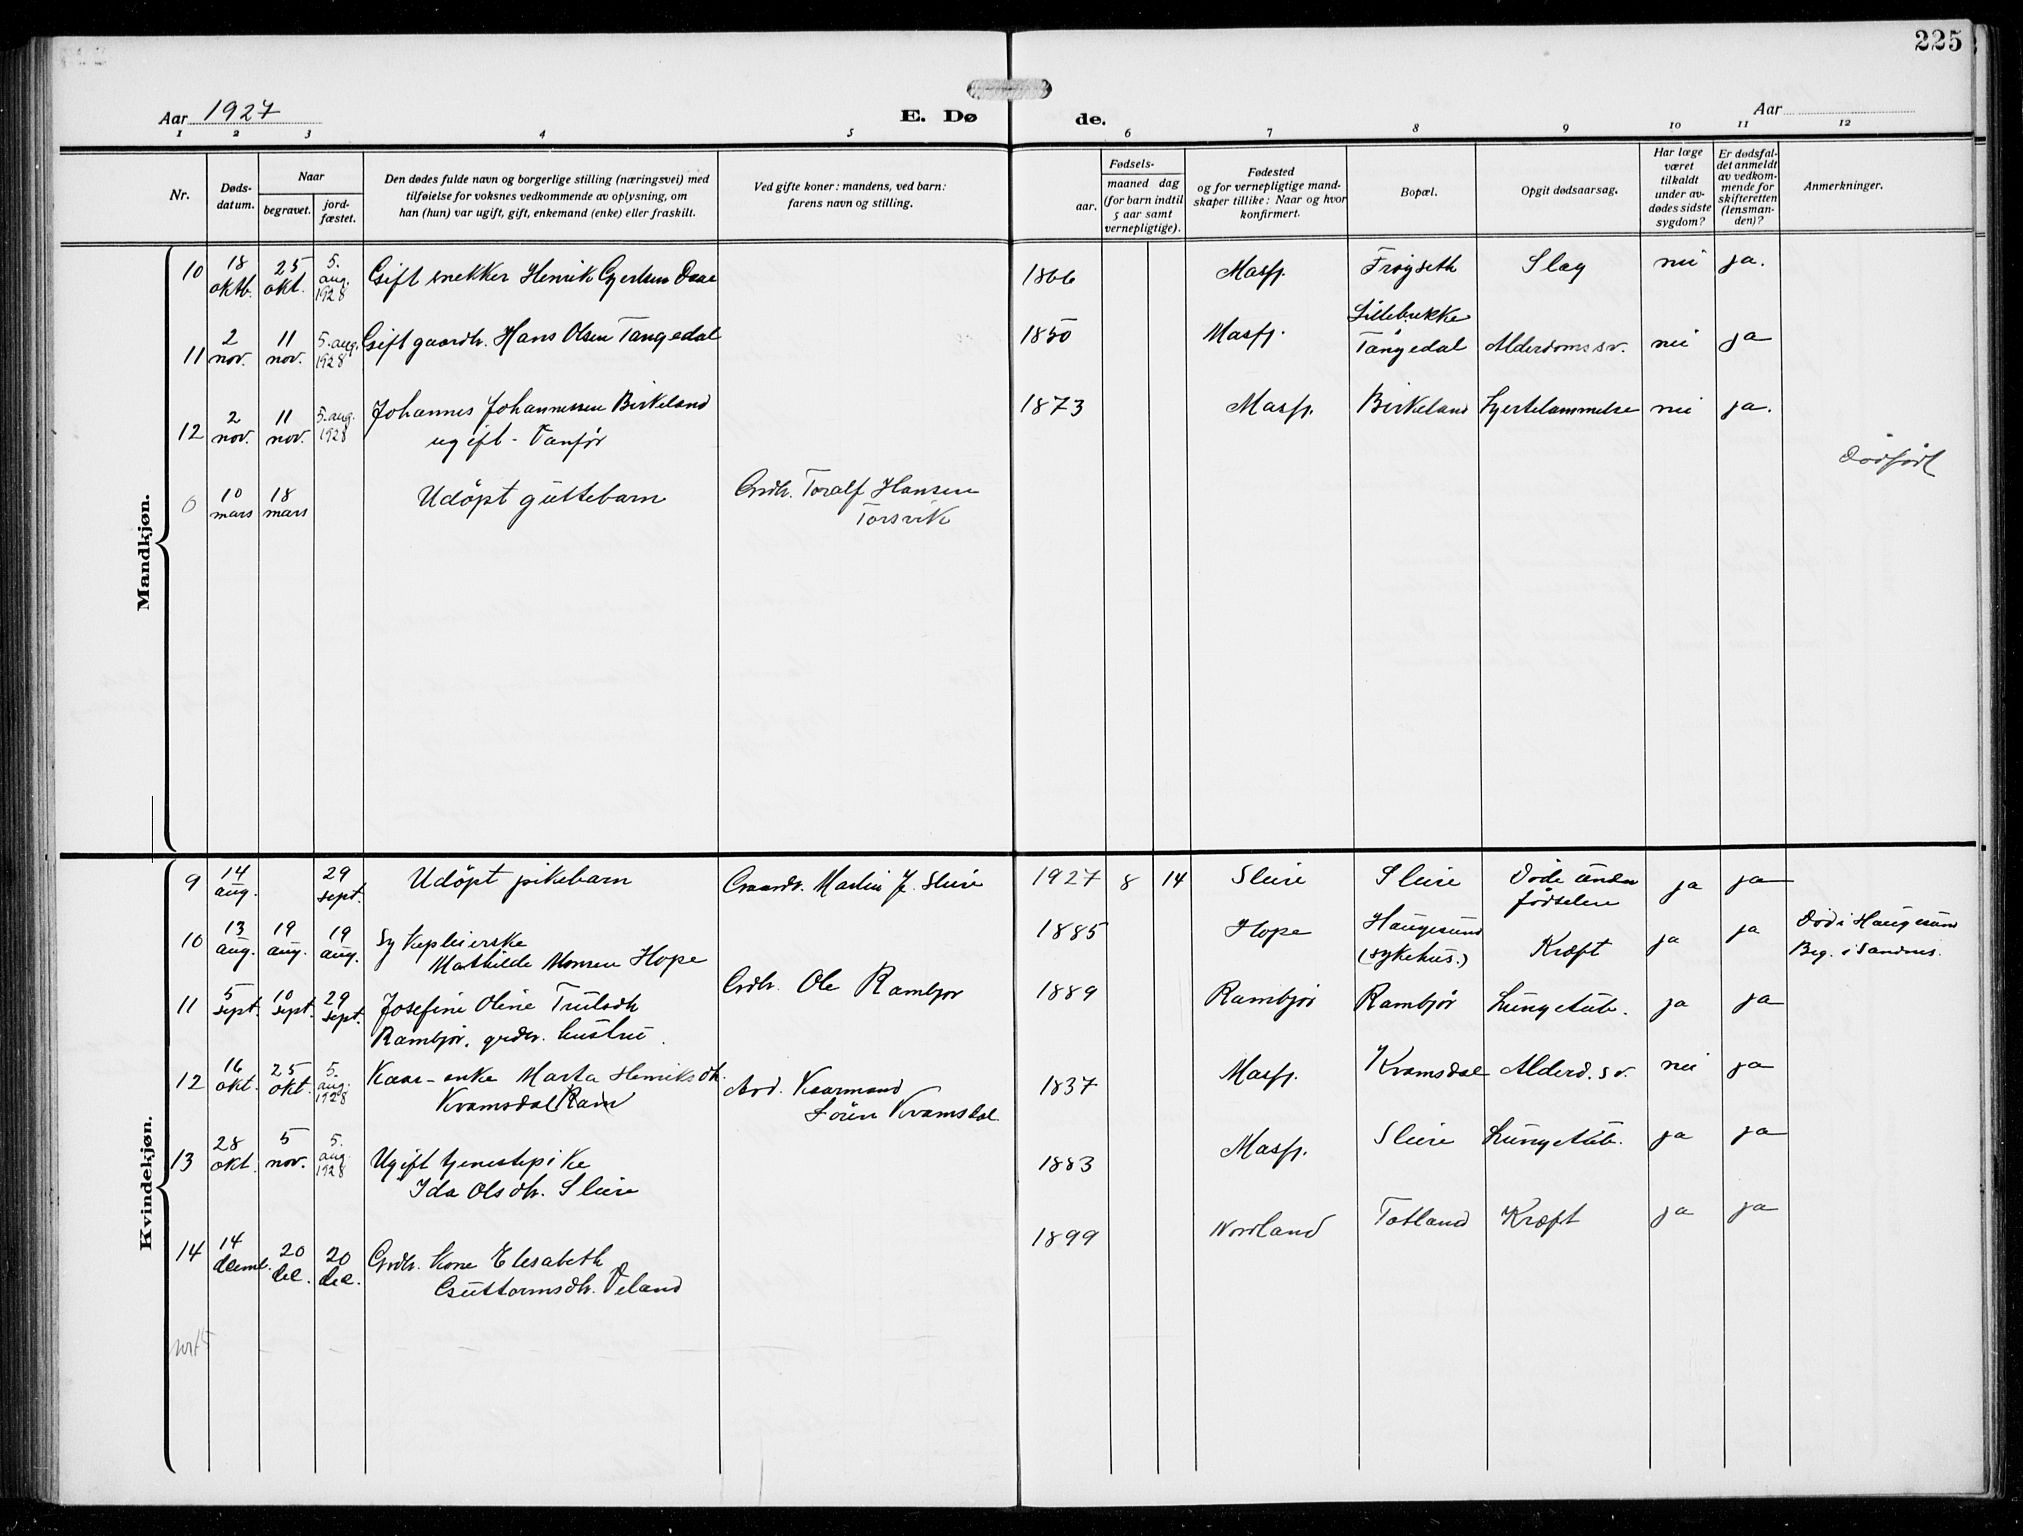 225
Aar 1927
E. Dø de.
Aar
1 2 3 4 5 6 7 8 9 10 11 12
Nr.
Døds-
datum.
Naar
begravet.
jord-
fæstet.
Den dødes fulde navn og borgerlige stilling (næringsvei) med
tilføielse for voksnes vedkommende av oplysning, om
han (hun) var ugift, gift, enkemand (enke) eller fraskilt.
Ved gifte koner: mandens, ved barn:
farens navn og stilling.
Fødsels-
aar.
maaned dag
(for barn indtil
5 aar samt
vernepligtige).
Fødested
og for vernepligtige mand-
skaper tillike: Naar og hvor
konfirmert.
Bopæl.
Opgit dødsaarsag.
Har læge
været
tilkaldt
under av-
dødes sidste
sygdom?
Er dødsfal-
det anmeldt
av vedkom-
mende for
skifteretten
(lensman-
den)?
Anmerkninger.
Mandkjøn.
10 18 oktb. 25 okt. 5. aug. 1928 Gift snekker Henrik Gjertsen Daae 1866 Masfj. Frøyseth Slag nei ja.
Lillebrekke
11 2 nov. 11 nov. 5. aug. 1928 Gift gaardb. Hans Olsen Tangedal 1850 Masfj. Tangedal Alderdomssv. nei ja
12 2 nov. 11 nov. 5. aug. 1928 Johannes Johannessen Birkeland 1873 Masfj. Birkeland Hjertelammelse nei ja.
ugift - Vanfør
0 10 mars 18 mars Udöpt guttebarn Grdb. Toralf Hansen Dödfödt
Torsvik
Kvindekjøn.
9 14 aug. 29 sept. Udöpt pikebarn Gaardb. Martin J. Sleire 1927 8 14 Sleire Sleire Döde under ja ja
födselen
10 13 aug. 19 aug. 19 aug. Sykepleierske 1885 Hope Haugesund Kræft ja ja Död i Haugesund
Mathilde Monsen Hope (sykehus.) Beg. i Sandnes.
11 5 sept. 10 sept. 29 sept. Josefine Oline Trulsdtr. Grdb. Ole Rambjør 1889 Rambjør Rambjør Lungetub. ja ja
Rambjør, grdbr. hustru.
12 16 okt. 25 okt. 5. aug. 1928 Kaar-enke Marta Henriksdtr. Avd. Kaarmand 1837 Masfj. Kvamsdal Alderd.sv. nei ja
Kvamsdal Sören Kvamsdal
13 28 okt. 5 nov. 5. aug. 1928 Ugift tjenestepike 1883 Masfj. Sleire Lungetub. ja ja
Ida Olsdtr. Sleire
14 14 decmb. 20 dec. 20 dec. Grdb. Kone Elesabeth 1899 Nordland Totland Kræft ja ja
Guttormsdtr. Veland